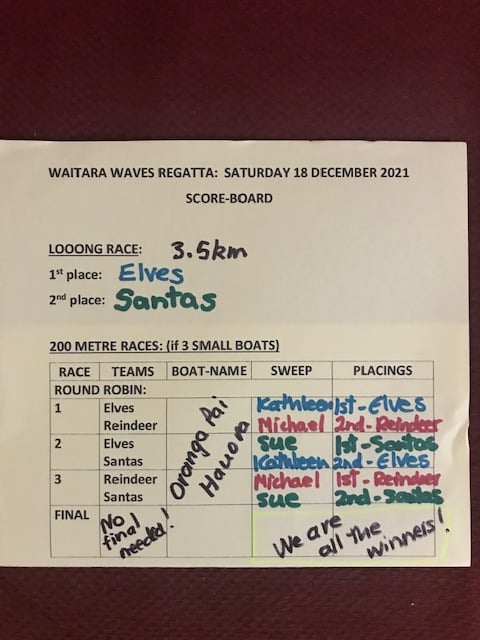 WAITARA WAVES REGATTA: SATURDAY 18 DECEMBER 2021
SCORE-BOARD
LOOONG RACE: 3.5km
1st place: Elves
2nd place: Santas
200 METRE RACES: (if 3 SMALL BOATS)
RACE TEAMS BOAT-NAME SWEEP PLACINGS
ROUND ROBIN:
1 Elves Kathleen 1st - Elves
Reindeer Michael 2nd - Reindeer
2 Elves Sue 1st - Santas
Santas Kathleen 2nd - Elves
3 Reindeer Michael 1st - Reindeer
Santas Sue 2nd - Santas
Oranga Pai
Hauora
FINAL No final needed! We are all the winners!